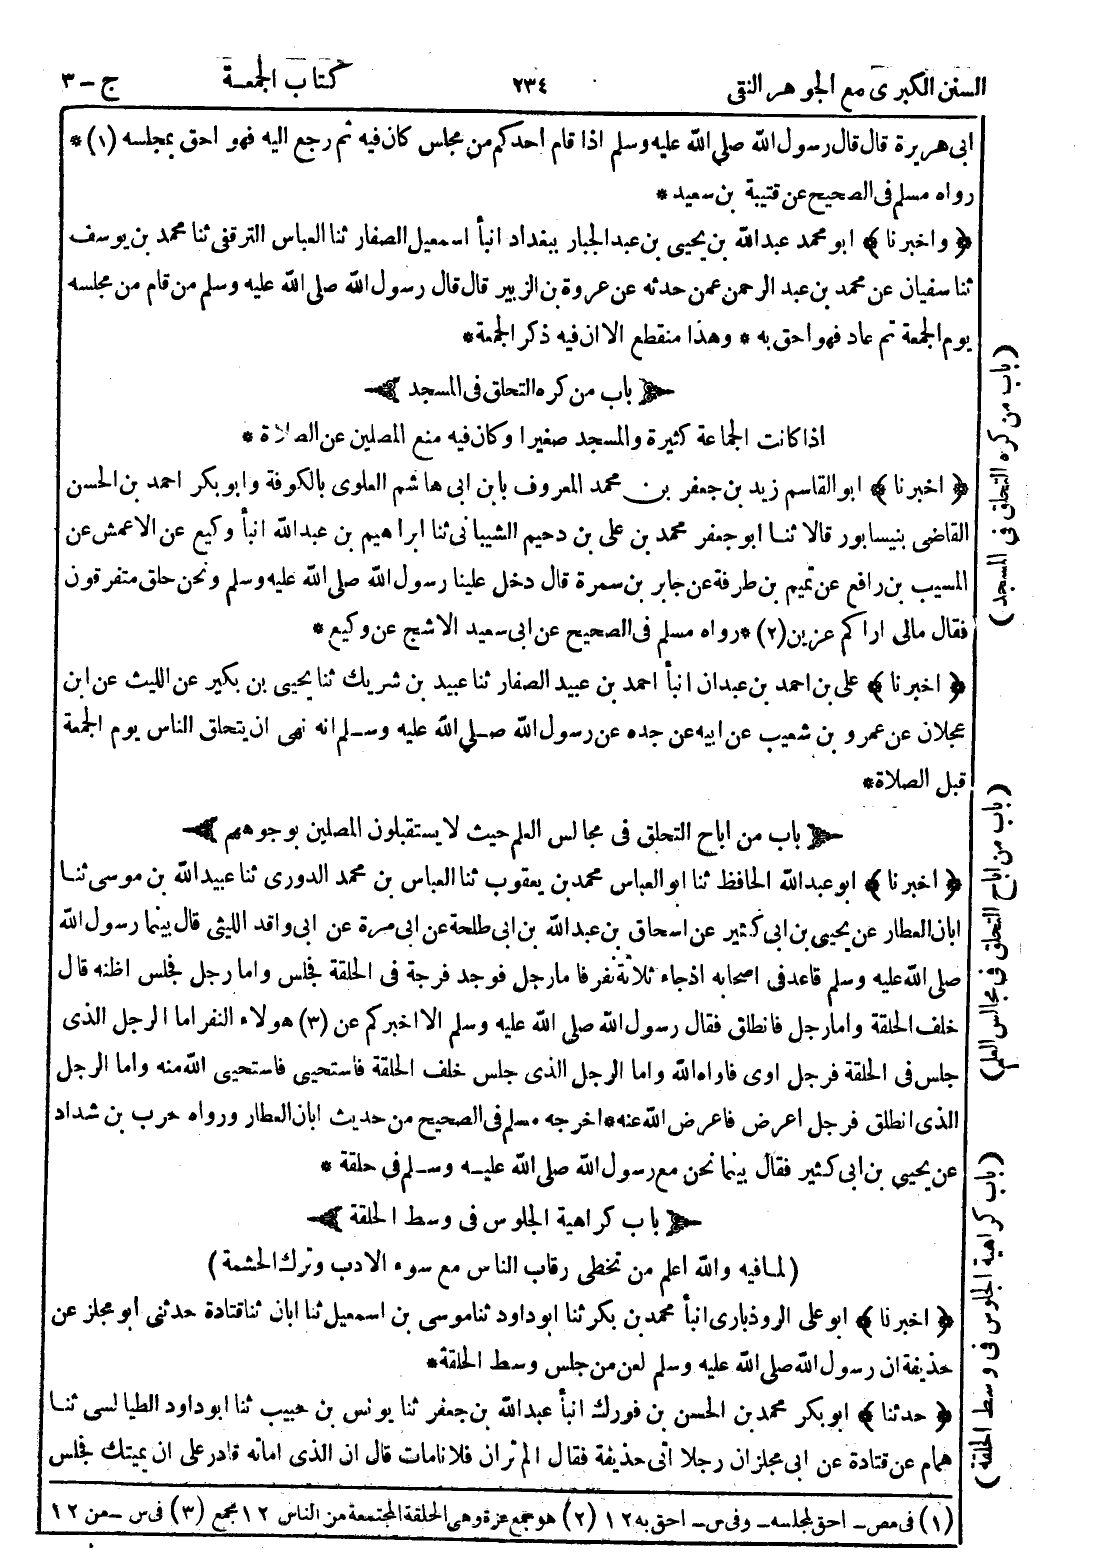 السنن الكبرى مع الجوهر النقى ٢٣٤ كتاب الجمعة ج - ٣
ابى هريرة قال قال رسول الله صلى الله عليه وسلم اذا قام احدكم من مجلس كان فيه ثم رجع اليه فهو احق بمجلسه (١) *
رواه مسلم فى الصحيح عن قتيبة بن سعيد *
﴿ واخبرنا ﴾ ابو محمد عبدالله بن يحيى بن عبدالجبار ببغداد انبأ اسمعيل الصفار ثنا العباس الترقفى ثنا محمد بن يوسف
ثنا سفيان عن محمد بن عبد الرحمن عمن حدثه عن عروة بن الزبير قال قال رسول الله صلى الله عليه وسلم من قام من مجلسه
يوم الجمعة ثم عاد فهو احق به * وهذا منقطع الا ان فيه ذكر الجمعة *
باب من كره التحلق فى المسجد
اذا كانت الجماعة كثيرة والمسجد صغيرا وكان فيه منع المصلين عن الصلاة *
﴿ اخبرنا ﴾ ابو القاسم زيد بن جعفر بن محمد المعروف بابن ابى هاشم العلوى بالكوفة وابو بكر احمد بن الحسن
القاضى بنيسابور قالا ثنا ابو جعفر محمد بن على بن دحيم الشيبانى ثنا ابراهيم بن عبدالله انبأ وكيع عن الاعمش عن
المسيب بن رافع عن تميم بن طرفة عن جابر بن سمرة قال دخل علينا رسول الله صلى الله عليه وسلم ونحن حلق متفرقون
فقال مالى اراكم عزين (٢) * رواه مسلم فى الصحيح عن ابى سعيد الاشج عن وكيع *
﴿ اخبرنا ﴾ على بن احمد بن عبدان انبأ احمد بن عبيد الصفار ثنا عبيد بن شريك ثنا يحيى بن بكير عن الليث عن ابن
عجلان عن عمرو بن شعيب عن ابيه عن جده عن رسول الله صلى الله عليه وسلم انه نهى ان يتحلق الناس يوم الجمعة
قبل الصلاة *
باب من اباح التحلق فى مجالس العلم حيث لا يستقبلون المصلين بوجوههم
﴿ اخبرنا ﴾ ابو عبدالله الحافظ ثنا ابو العباس محمد بن يعقوب ثنا العباس بن محمد الدورى ثنا عبيد الله بن موسى ثنا
ابان العطار عن يحيى بن ابى كثير عن اسحاق بن عبدالله بن ابى طلحة عن ابى مرة عن ابى واقد الليثى قال بينما رسول الله
صلى الله عليه وسلم قاعد فى اصحابه اذ جاء ثلاثة نفر فاما رجل فوجد فرجة فى الحلقة فجلس واما رجل فجلس اظنه قال
خلف الحلقة واما رجل فانطلق فقال رسول الله صلى الله عليه وسلم الا اخبركم عن (٣) هولاء النفر اما الرجل الذى
جلس فى الحلقة فرجل اوى فاواه الله واما الرجل الذى جلس خلف الحلقة فاستحيى فاستحيى الله منه واما الرجل
الذى انطلق فرجل اعرض فاعرض الله عنه * اخرجه مسلم فى الصحيح من حديث ابان العطار ورواه حرب بن شداد
عن يحيى بن ابى كثير فقال بينما نحن مع رسول الله صلى الله عليه وسلم فى حلقة *
باب كراهية الجلوس فى وسط الحلقة
(لما فيه والله اعلم من تخطى رقاب الناس مع سوء الادب وترك الحشمة)
﴿ اخبرنا ﴾ ابو على الروذبارى انبأ محمد بن بكر ثنا ابو داود ثنا موسى بن اسمعيل ثنا ابان ثنا قتادة حدثنى ابو مجلز عن
حذيفة ان رسول الله صلى الله عليه وسلم لعن من جلس وسط الحلقة *
﴿ حدثنا ﴾ ابو بكر محمد بن الحسن بن فورك انبأ عبدالله بن جعفر ثنا يونس بن حبيب ثنا ابو داود الطيالسى ثنا
همام عن قتادة عن ابى مجلز ان رجلا اتى حذيفة فقال الم تر ان فلانا مات قال ان الذى اماته قادر على ان يميتك فجلس
(١) فى مص - احق لمجلسه - وفى س - احق به ١٢ (٢) هو جمع عزة وهى الحلقة المجتمعة من الناس ١٢ مجمع (٣) فى س - من ١٢
(باب من كره التحلق فى المسجد)
(باب من اباح التحلق فى مجالس العلم)
(باب كراهية الجلوس فى وسط الحلقة)